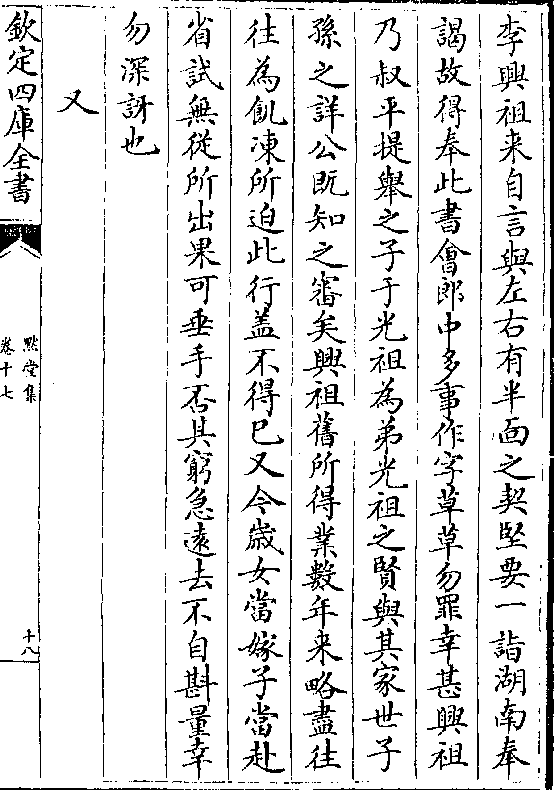 李興祖来自言與左右有半面之契堅要一詣湖南奉
謁故得奉此書會郎中多事作字草草勿罪幸甚興祖
乃叔平提舉之子于光祖為弟光祖之賢與其家世子
孫之詳公既知之審矣興祖舊所得業數年来略盡往
往為飢凍所迫此行盖不得已又今歳女當嫁子當赴
省試無從所出果可垂手否其窮急遠去不自斟量幸
勿深訝也
又
欽定四庫全書
默堂集
卷十七
十八